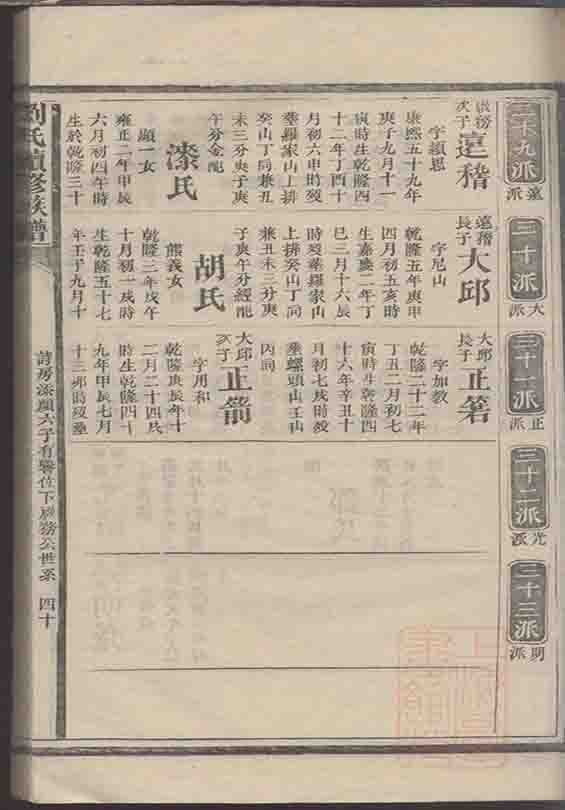 二十九派 遠派
三十派 大派
三十一派 正派
三十二派 光派
三十三派 明派
次子 遠稽
字顯恩
康熙五十九年
庚子九月十一
寅時生乾隆四
十二年丁酉十
月初六申時歿
葬羅家山上排
癸山丁向兼丑
未三分庚子庚
午分金配
漆氏
顯一女
雍正二年甲辰
六月初四午時
生於乾隆三十
遠稽長子 大邱
字尼山
乾隆五年庚申
四月初五亥時
生嘉慶二年丁
巳三月十六辰
時歿葬羅家山
上排癸山丁向
兼丑未三分庚
子庚午分經配
胡氏
熊義女
乾隆三年戊午
十月初一戌時
生乾隆五十七
年壬子九月十
大邱長子 正箸
字加教
乾隆二十二年
丁丑二月初七
寅時生乾隆四
十六年辛丑十
月初七戌時歿
葬螺頭山壬山
丙向
大邱次子 正箭
字用和
乾隆庚辰年十
二月二十四戌
時生乾隆四十
九年甲辰七月
十三卯時歿葬
劉氏續修族譜
房漆顔六子有譽位下務公世系 四十